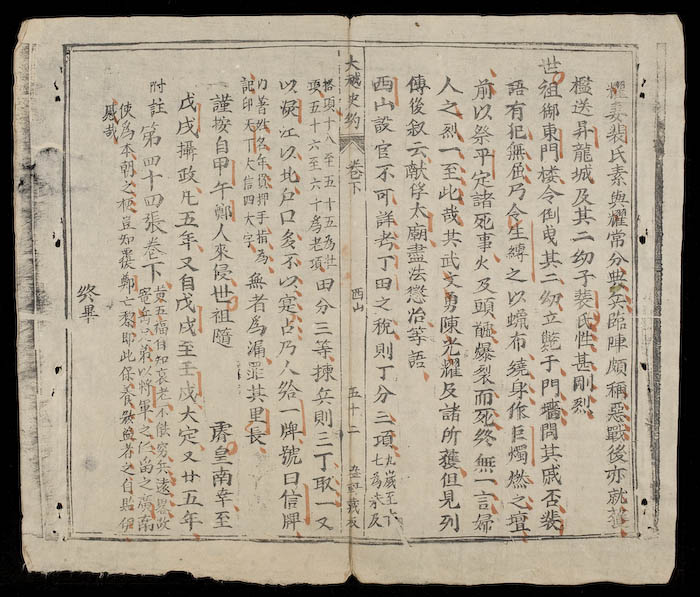 耀妻裴氏素與耀常分典兵臨陣頗稱惡戰後亦就獲
檻送昇龍城及其二幼子裴氏性甚剛烈
世祖御東門樓令倒曳其二幼立斃于門墻問其戚否裴
語有犯無色乃令生縛之以蠟布繞身作巨燭燃之壇
前以祭平定諸死事火及頭髗爆裂而死終無一言婦
人之烈一至此哉其武文勇陳光耀及諸所獲但見列
傳後叙云献俘太廟盡法懲治等語
西山設官不可詳考丁田之稅則丁分三項九歲至十七為未及
大越史約
卷下
西山
五十二
格項十八至五十五為壯項五十六至六十為老項田分三等揀兵則三丁取一又
以江以北戶口多不以寔占乃人給一牌號曰信牌
內著姓名年像押手指為記印天下大信四大字無者為漏罪其里長
謹按自甲午鄭人來侵世祖隨 睿皇南幸至
戊戌攝政凡五年又自戊戌至壬戌大定又廿五年
附註第四十四張卷下黃五福自知衰老不能窮兵遠
使為本朝之梗豈知覆鄭亡黎即此
終畢